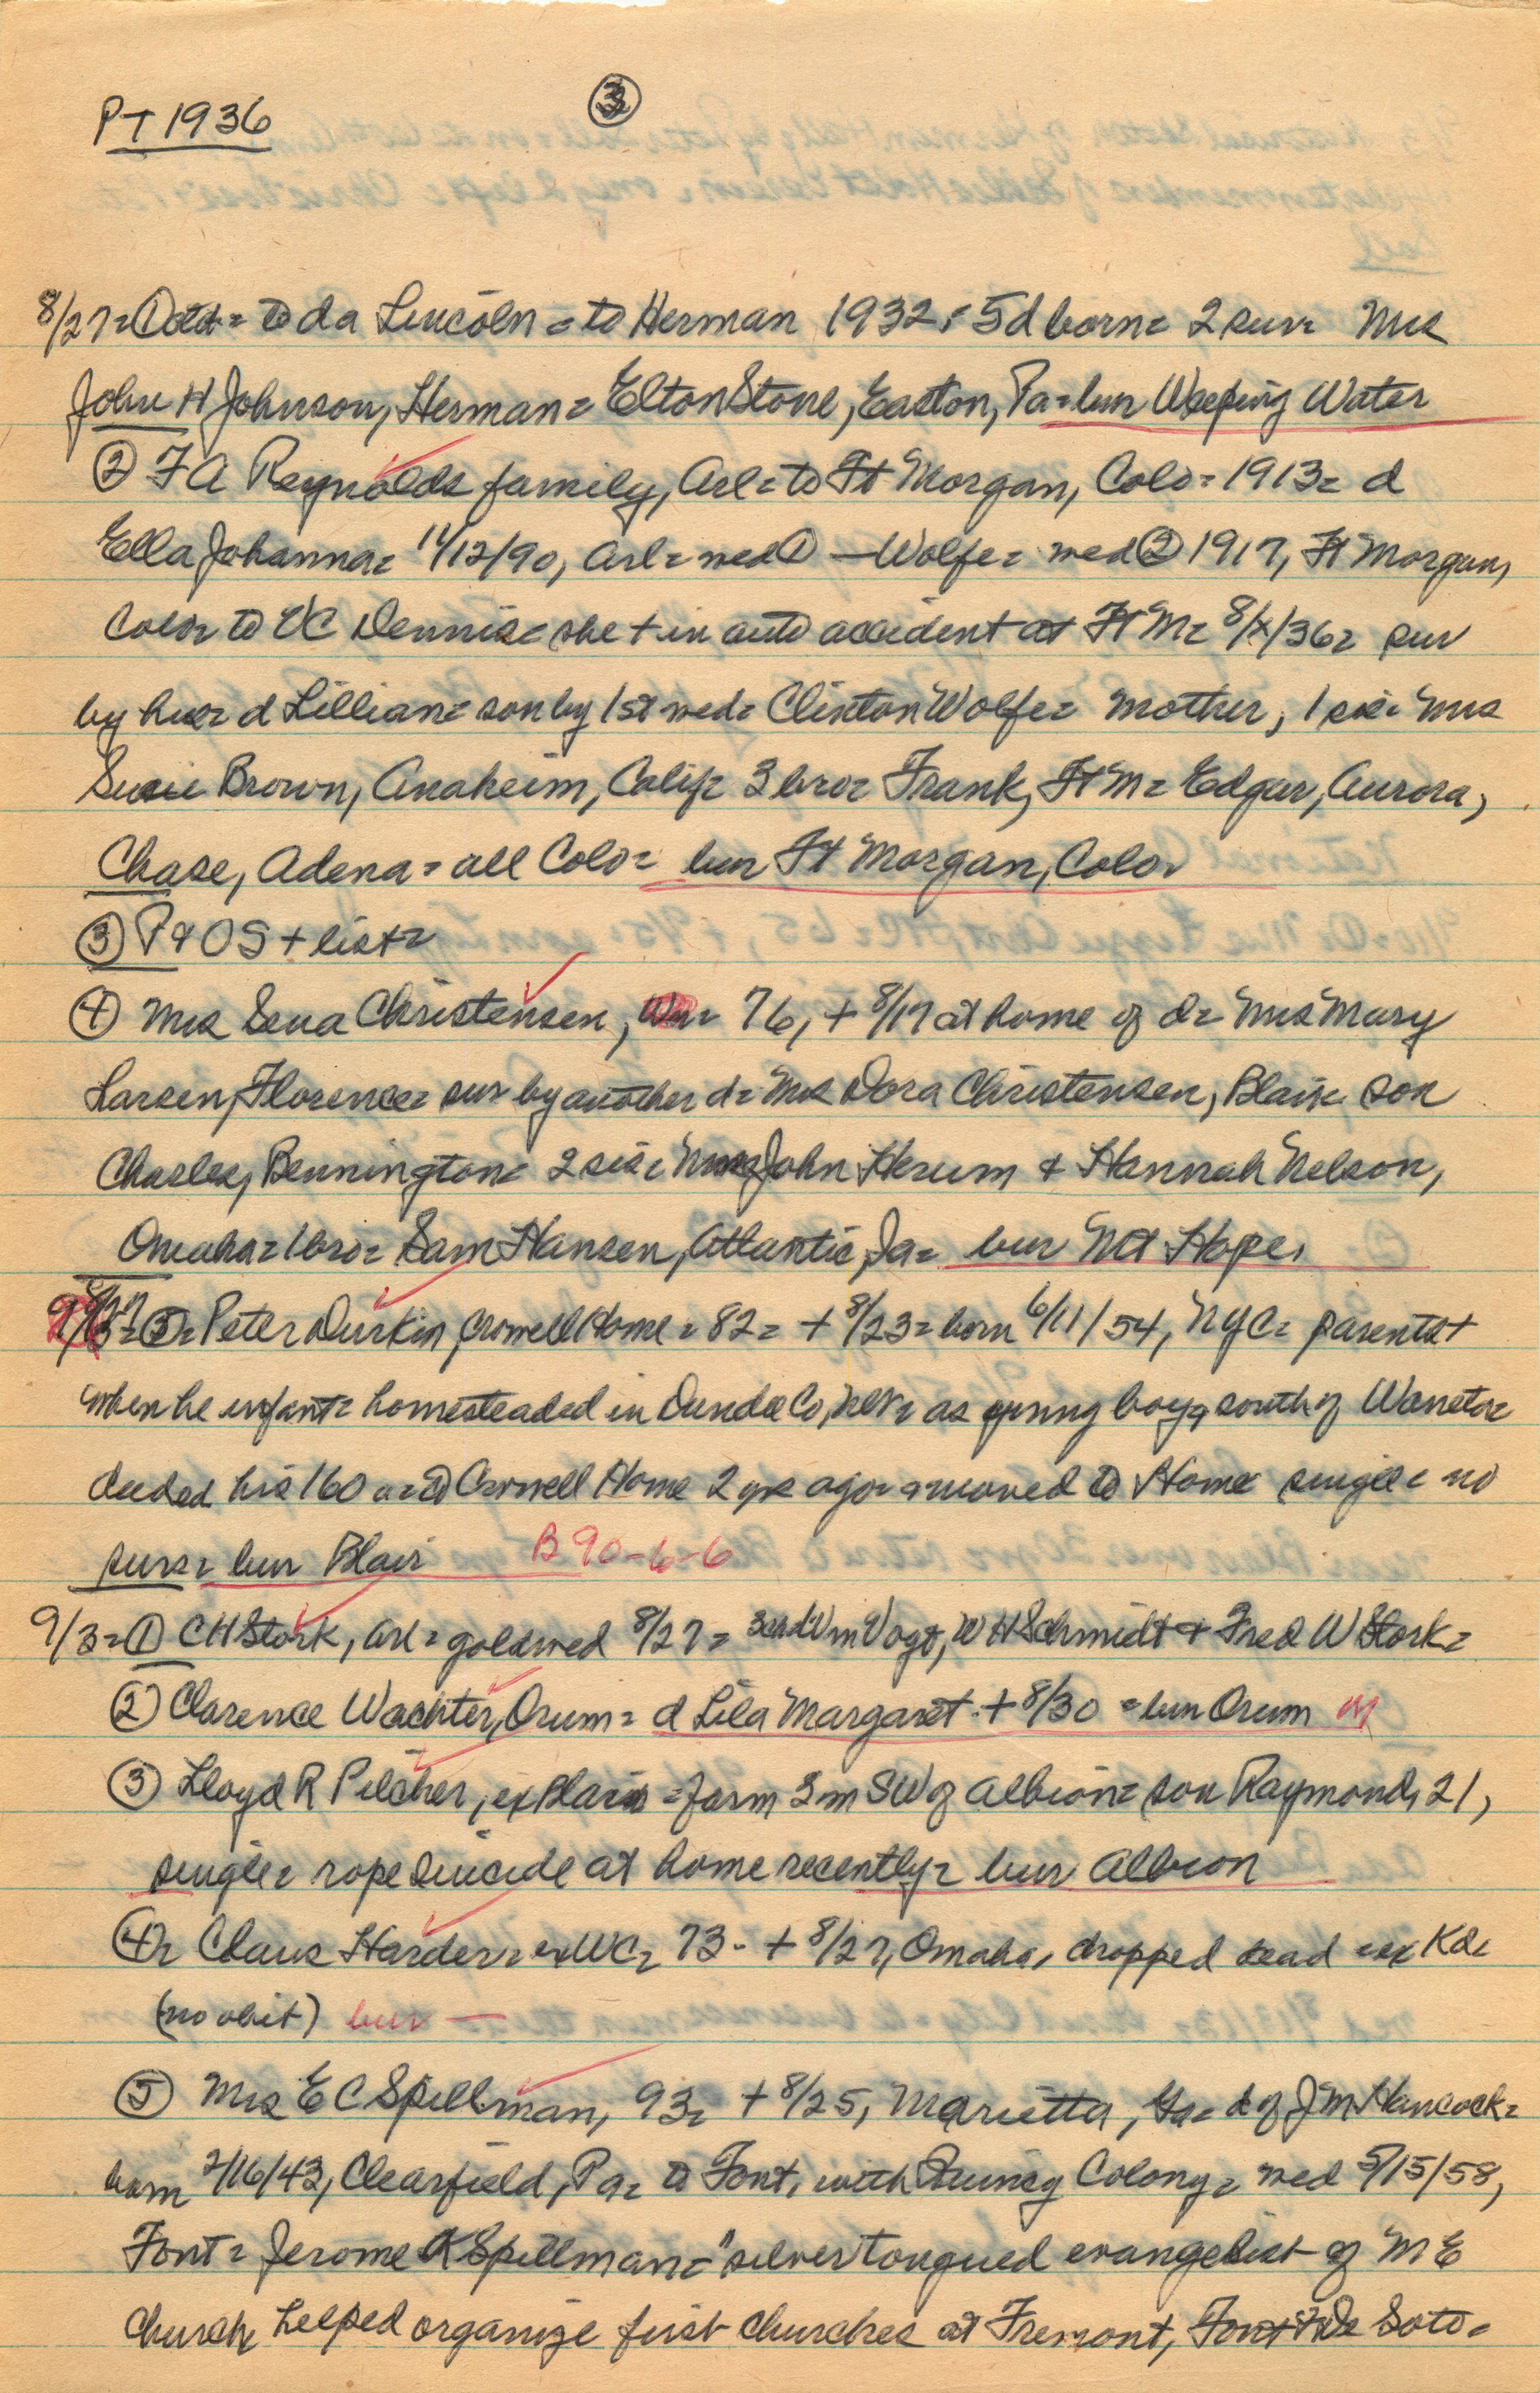 PT 1936
3
8/27= ① = to da Lincoln = to Herman 1932 = 5d born = 2 surv Mrs
John H Johnson, Herman = Elton Stone, Easton, Pa = bur Weeping Water
② F A Reynolds family, Arl = to Ft Morgan, Colo = 1913 = d
Ella Johanna = 11/12/90, Arl = wed ① — Wolfe = wed ② 1917, Ft Morgan,
Colo = to V C Dennis = she + in auto accident at Ft M = 8/x/36 = sur
by hus = d Lillian = son by 1st wed = Clinton Wolfe = mother, 1 sis = Mrs
Susie Brown, Anaheim, Calif = 3 bro = Frank, Ft M = Edgar, Aurora,
Chase, Adena = all Colo = bur Ft Morgan, Colo
③ P & OS + list =
④ Mrs Sena Christensen, 76, + 8/17 at home of d = Mrs Mary
Larsen, Florence = sur by another d = Mrs Dora Christensen, Blair = son
Charles, Bennington = 2 sis = John Herum & Hannah Nelson,
Omaha = 1 bro = Sam Hansen, Atlantic, Ia = bur Mt Hope
8/27 ⑤ = Peter Durkin, Crowell Home = 82 = + 8/23 = born 6/11/54, NYC = parents +
when he infant = homesteaded in Dundee Co, Neb = as young boy, south of Waneta =
deeded his 160 a = to Crowell Home 2 yrs ago = & moved to Home = single = no
surs = bur Blair B 90-6-6
9/3 = ① C H Stork, Arl = gold wed 8/27 = Wm Vogt, W H Schmidt & Fred W Stork =
② Clarence Wachter, Orum = d Lila Margaret + 8/30 = bur Orum M
③ Lloyd R Pilcher, ex Blair = farm 3 m SW of Albion = son Raymond, 21,
single = rope suicide at home recently = bur Albion
④ = Claus Harder = ex WC = 73 - + 8/27, Omaha, dropped dead = ex Kd =
(no obit) bur —
⑤ Mrs E C Spillman, 93 = + 8/25, Marietta, Ga = d of J M Hancock =
born 2/16/43, Clearfield, Pa = to Font, with Quincy Colony = wed 5/15/58,
Font = Jerome K Spillman = "silver tongued evangelist of M E
Church, helped organize first churches at Fremont, Font & De Soto =